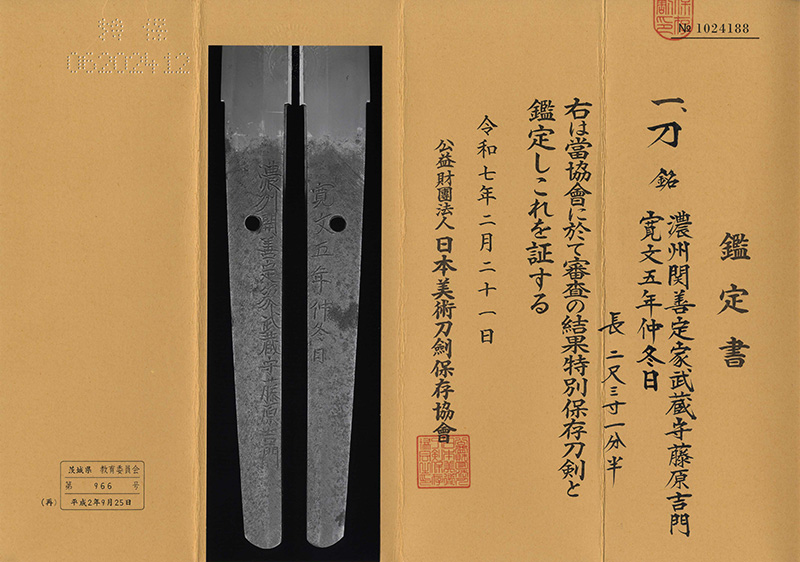 № 1024188
鑑定書
一、刀 銘 濃州関善定家武蔵守藤原吉門
寛文五年仲冬日
長 二尺三寸一分半
右は當協會に於て審査の結果特別保存刀剣と
鑑定しこれを証する
令和七年二月二十一日
公益財團法人 日本美術刀劍保存協會
寛文五年仲冬日
濃州関善定家武蔵守藤原吉門
特保
06202412
茨城県 教育委員会
第 966 号
(再) 平成2年9月25日